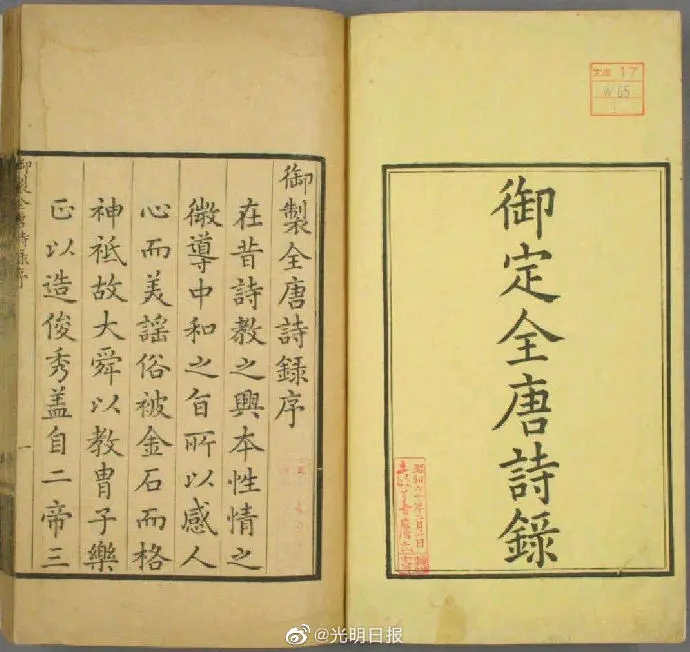 御定全唐詩錄
文庫 17
W 65
1
昭和六十年二月一日
御製全唐詩錄序
在昔詩教之興本性情之
微導中和之旨所以感人
心而美謡俗被金石而格
神祇故大舜以教胄子樂
正以造俊秀盖自二帝三
御製全唐詩錄序
一
@光明日报